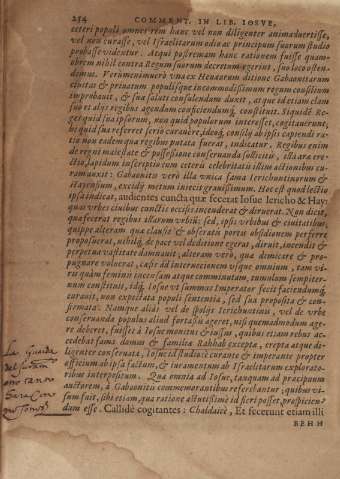 254 COMMENT. IN LIB. IOSVE,
ceteri populi omnes rem hanc vel non diligenter animaduertisse,
vel non curasse, vel Israelitarum odio ac principum suorum studio
probasse videntur. Atqui postremam hanc rationem fuisse quam-
obrem nihil contra Regum suorum decretum egerint, suo loco osten-
demus. Verumenimuerò vna ex Heuæorum ditione Gabaonitarum
ciuitas & priuatum populisque incommodissimum regum consilium
improbauit, & sua saluti consulendum duxit, atque id etiam clam
suo et alijs regibus agendum conficiendumq́; constituit. Siquidē Re-
ges quid sua ipsorum, non quid populorum interesset, cogitauerunt,
hi quid sua referret seriò curauere, ideoq́; consilij ab ipsis capiendi ra-
tio non eadem quæ regibus putata fuerat, indicatur. Regibus enim
de regni maiestate & possessione conseruanda sollicitis,
ctio, lapidum inscriptio cum ceteris celebritatis illius actionibus cu-
ram auxit: Gabaonitis verò illa vnica fama Ierichuntinorum &
Hayensium, excidij metum iniecit grauissimum. Hoc est quod lectio
ipsa indicat, audientes cuncta quæ fecerat Iosue Iericho & Hay:
quas vrbes ciuibus cunctis occisis incenderat & diruerat. Non dicit,
quæ fecerat regibus istarum vrbiū: sed, ipsis vrbibus & ciuitatibus,
quippe alteram quæ clausis & obseratis portis obsidionem perferre
proposuerat, nihil de pact vel deditione egerat, diruit, incendit &
perpetua vastitate damnauit, alteram verò, quæ dimicare & pro-
pugnare voluerat, cæsis ad internecionem vsque omnium, tam vi-
ris quàm feminis incensam atque comminutam, tumulum sempiter-
num constituit, idq́; Iosue vt summus Imperator fecit faciendumq́;
curauit, non expectata populi sententia, sed sua proposita & con-
firmata. Namque alias vel de spolijs Ierichuntinis, vel de vrbe
conseruanda populus aliud fortasse ageret, nisi quemadmodum age-
re deberet, fuisset à Iosue monitus & iussus, quibus etiam rebus ac-
cedebat fama domus & familiæ Rahhab exceptæ, ereptæ atque di-
ligenter conseruatæ, Iosue id studiosè curante & imperante propter
officium ab ipsa factum, & iuramentum ab Israelitarum explorato-
ribus interpositum. Quæ omnia ad Iosue, tanquam ad præcipuum
auctorem, à Gabaonitis commemorantibus referebantur; quibus vi-
sum fuit, sibi etiam, qua ratione astutissimè id fieri posset, prospicien-
dum esse. Callidè cogitantes: Chaldaicè, Et fecerunt etiam illi
BEHH
La Guida